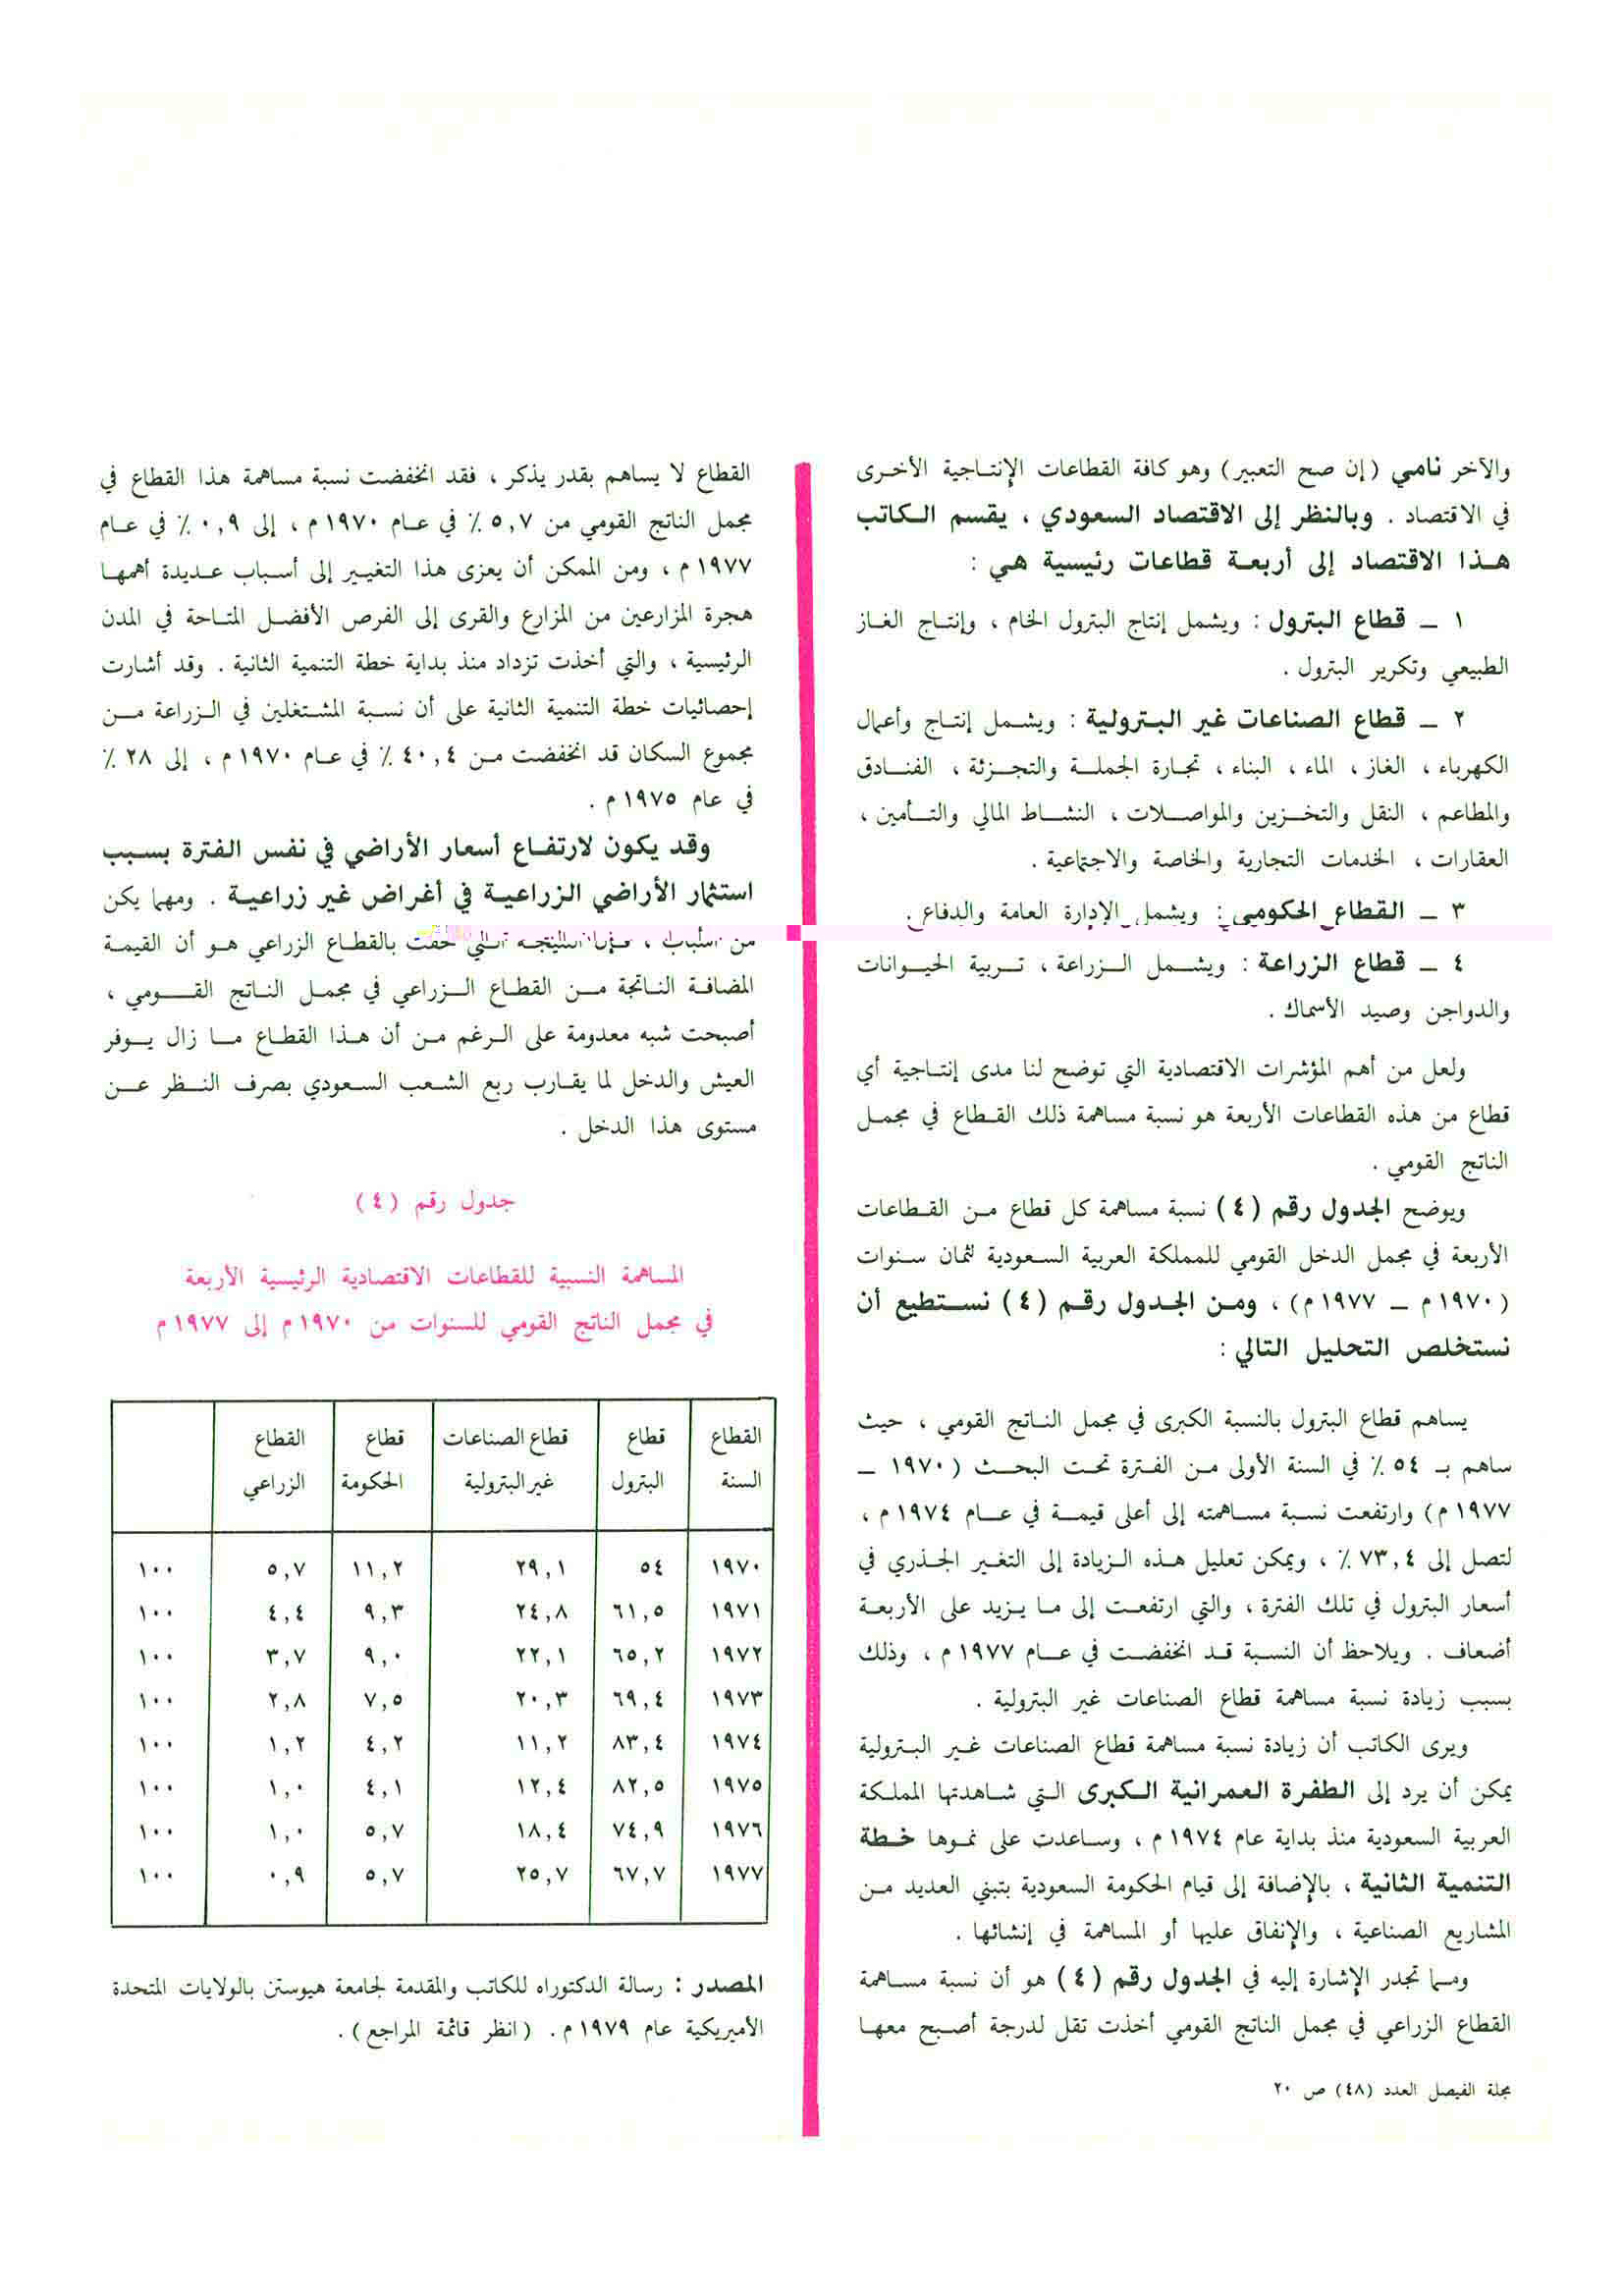 والآخر نامي (إن صح التعبير) وهو كافة القطاعات الإنتاجية الأخرى
في الاقتصاد . وبالنظر إلى الاقتصاد السعودي ، يقسم الكاتب
هذا الاقتصاد إلى أربعة قطاعات رئيسية هي :
١ ــ قطاع البترول : ويشمل إنتاج البترول الخام ، وإنتاج الغاز
الطبيعي وتكرير البترول .
٢ ــ قطاع الصناعات غير البترولية : ويشمل إنتاج وأعمال
الكهرباء ، الغاز ، الماء ، البناء ، تجارة الجملة والتجزئة ، الفنادق
والمطاعم ، النقل والتخزين والمواصلات ، النشاط المالي والتأمين ،
العقارات ، الخدمات التجارية والخاصة والاجتماعية .
٣ ــ القطاع الحكومي : ويشمل الإدارة العامة والدفاع .
٤ ــ قطاع الزراعة : ويشمل الزراعة ، تربية الحيوانات
والدواجن وصيد الأسماك .
ولعل من أهم المؤشرات الاقتصادية التي توضح لنا مدى إنتاجية أي
قطاع من هذه القطاعات الأربعة هو نسبة مساهمة ذلك القطاع في مجمل
الناتج القومي .
ويوضح الجدول رقم (٤) نسبة مساهمة كل قطاع من القطاعات
الأربعة في مجمل الدخل القومي للمملكة العربية السعودية لثمان سنوات
(١٩٧٠ م ــ ١٩٧٧ م) ، ومن الجدول رقم (٤) نستطيع أن
نستخلص التحليل التالي :
يساهم قطاع البترول بالنسبة الكبرى في مجمل الناتج القومي ، حيث
ساهم بـ ٥٤ ٪ في السنة الأولى من الفترة تحت البحث (١٩٧٠ ــ
١٩٧٧ م) وارتفعت نسبة مساهمته إلى أعلى قيمة في عام ١٩٧٤ م ،
لتصل إلى ٧٣,٤ ٪ ، ويمكن تعليل هذه الزيادة إلى التغير الجذري في
أسعار البترول في تلك الفترة ، والتي ارتفعت إلى ما يزيد على الأربعة
أضعاف . ويلاحظ أن النسبة قد انخفضت في عام ١٩٧٧ م ، وذلك
بسبب زيادة نسبة مساهمة قطاع الصناعات غير البترولية .
ويرى الكاتب أن زيادة نسبة مساهمة قطاع الصناعات غير البترولية
يمكن أن يرد إلى الطفرة العمرانية الكبرى التي شاهدتها المملكة
العربية السعودية منذ بداية عام ١٩٧٤ م ، وساعدت على نموها خطة
التنمية الثانية ، بالإضافة إلى قيام الحكومة السعودية بتبني العديد من
المشاريع الصناعية ، والإنفاق عليها أو المساهمة في إنشائها .
ومما تجدر الإشارة إليه في الجدول رقم (٤) هو أن نسبة مساهمة
القطاع الزراعي في مجمل الناتج القومي أخذت تقل لدرجة أصبح معها
مجلة الفيصل العدد (٤٨) ص ٢٠
القطاع لا يساهم بقدر يذكر ، فقد انخفضت نسبة مساهمة هذا القطاع في
مجمل الناتج القومي من ٥,٧ ٪ في عام ١٩٧٠ م ، إلى ٠,٩ ٪ في عام
١٩٧٧ م ، ومن الممكن أن يعزى هذا التغيير إلى أسباب عديدة أهمها
هجرة المزارعين من المزارع والقرى إلى الفرص الأفضل المتاحة في المدن
الرئيسية ، والتي أخذت تزداد منذ بداية خطة التنمية الثانية . وقد أشارت
إحصائيات خطة التنمية الثانية على أن نسبة المشتغلين في الزراعة من
مجموع السكان قد انخفضت من ٤٠,٤ ٪ في عام ١٩٧٠ م ، إلى ٢٨ ٪
في عام ١٩٧٥ م .
وقد يكون لارتفاع أسعار الأراضي في نفس الفترة بسبب
استثمار الأراضي الزراعية في أغراض غير زراعية . ومهما يكن
من ، بالقطاع الزراعي هو أن القيمة
المضافة الناتجة من القطاع الزراعي في مجمل الناتج القومي ،
أصبحت شبه معدومة على الرغم من أن هذا القطاع ما زال يوفر
العيش والدخل لما يقارب ربع الشعب السعودي بصرف النظر عن
مستوى هذا الدخل .
جدول رقم (٤)
المساهمة النسبية للقطاعات الاقتصادية الرئيسية الأربعة
في مجمل الناتج القومي للسنوات من ١٩٧٠ م إلى ١٩٧٧ م
القطاع قطاع قطاع الصناعات قطاع القطاع
السنة البترول غير البترولية الحكومة الزراعي
١٩٧٠ ٥٤ ٢٩,١ ١١,٢ ٥,٧ ١٠٠
١٩٧١ ٦١,٥ ٢٤,٨ ٩,٣ ٤,٤ ١٠٠
١٩٧٢ ٦٥,٢ ٢٢,١ ٩,٠ ٣,٧ ١٠٠
١٩٧٣ ٦٩,٤ ٢٠,٣ ٧,٥ ٢,٨ ١٠٠
١٩٧٤ ٨٣,٤ ١١,٢ ٤,٢ ١,٢ ١٠٠
١٩٧٥ ٨٢,٥ ١٢,٤ ٤,١ ١,٠ ١٠٠
١٩٧٦ ٧٤,٩ ١٨,٤ ٥,٧ ١,٠ ١٠٠
١٩٧٧ ٦٧,٧ ٢٥,٧ ٥,٧ ٠,٩ ١٠٠
المصدر : رسالة الدكتوراه للكاتب والمقدمة لجامعة هيوستن بالولايات المتحدة
الأميريكية عام ١٩٧٩ م . (انظر قائمة المراجع) .